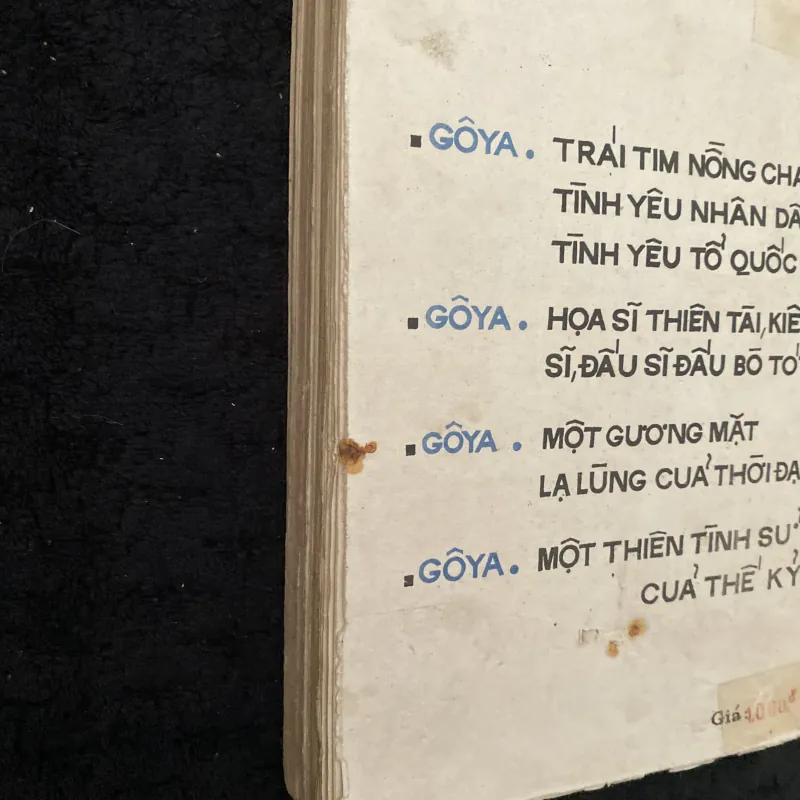 ▪ GÔYA. TRÁI TIM NỒNG CHÁ
TÌNH YÊU NHÂN DÂ
TÌNH YÊU TỔ QUỐC
▪ GÔYA. HỌA SĨ THIÊN TÀI, KIÊ
SĨ, ĐẤU SĨ ĐẤU BÒ TÓ
▪ GÔYA. MỘT GƯƠNG MẶT
LẠ LÙNG CỦA THỜI ĐẠ
▪ GÔYA. MỘT THIÊN TÌNH SỬ
CỦA THẾ KỶ
Giá